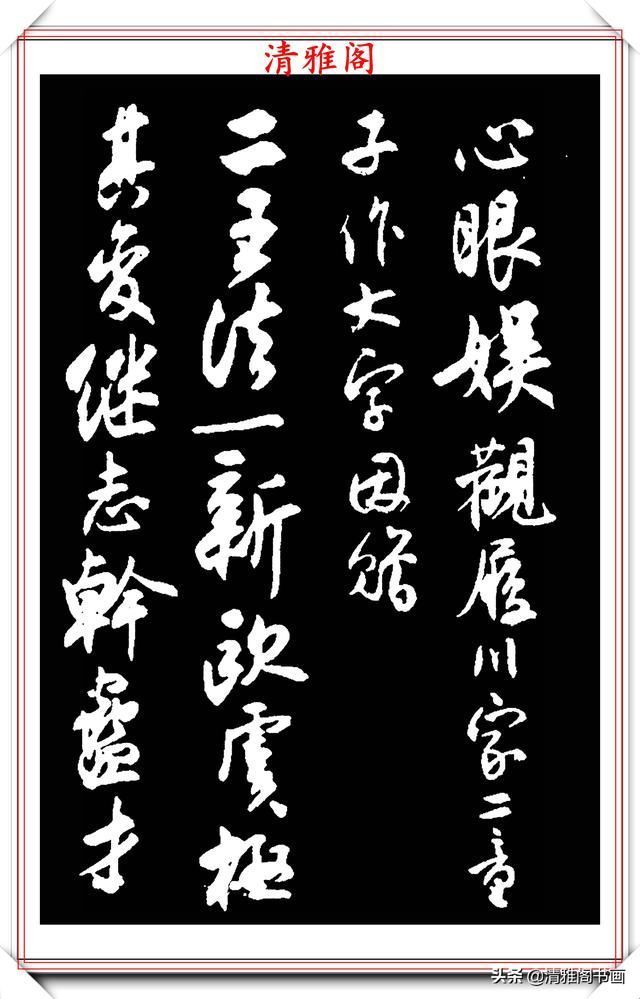 清雅阁
心眼娱觀履川家二童
子作大字因贈
二王法一新欧虞極
其變继志幹蠱才
头条 @清雅阁书画